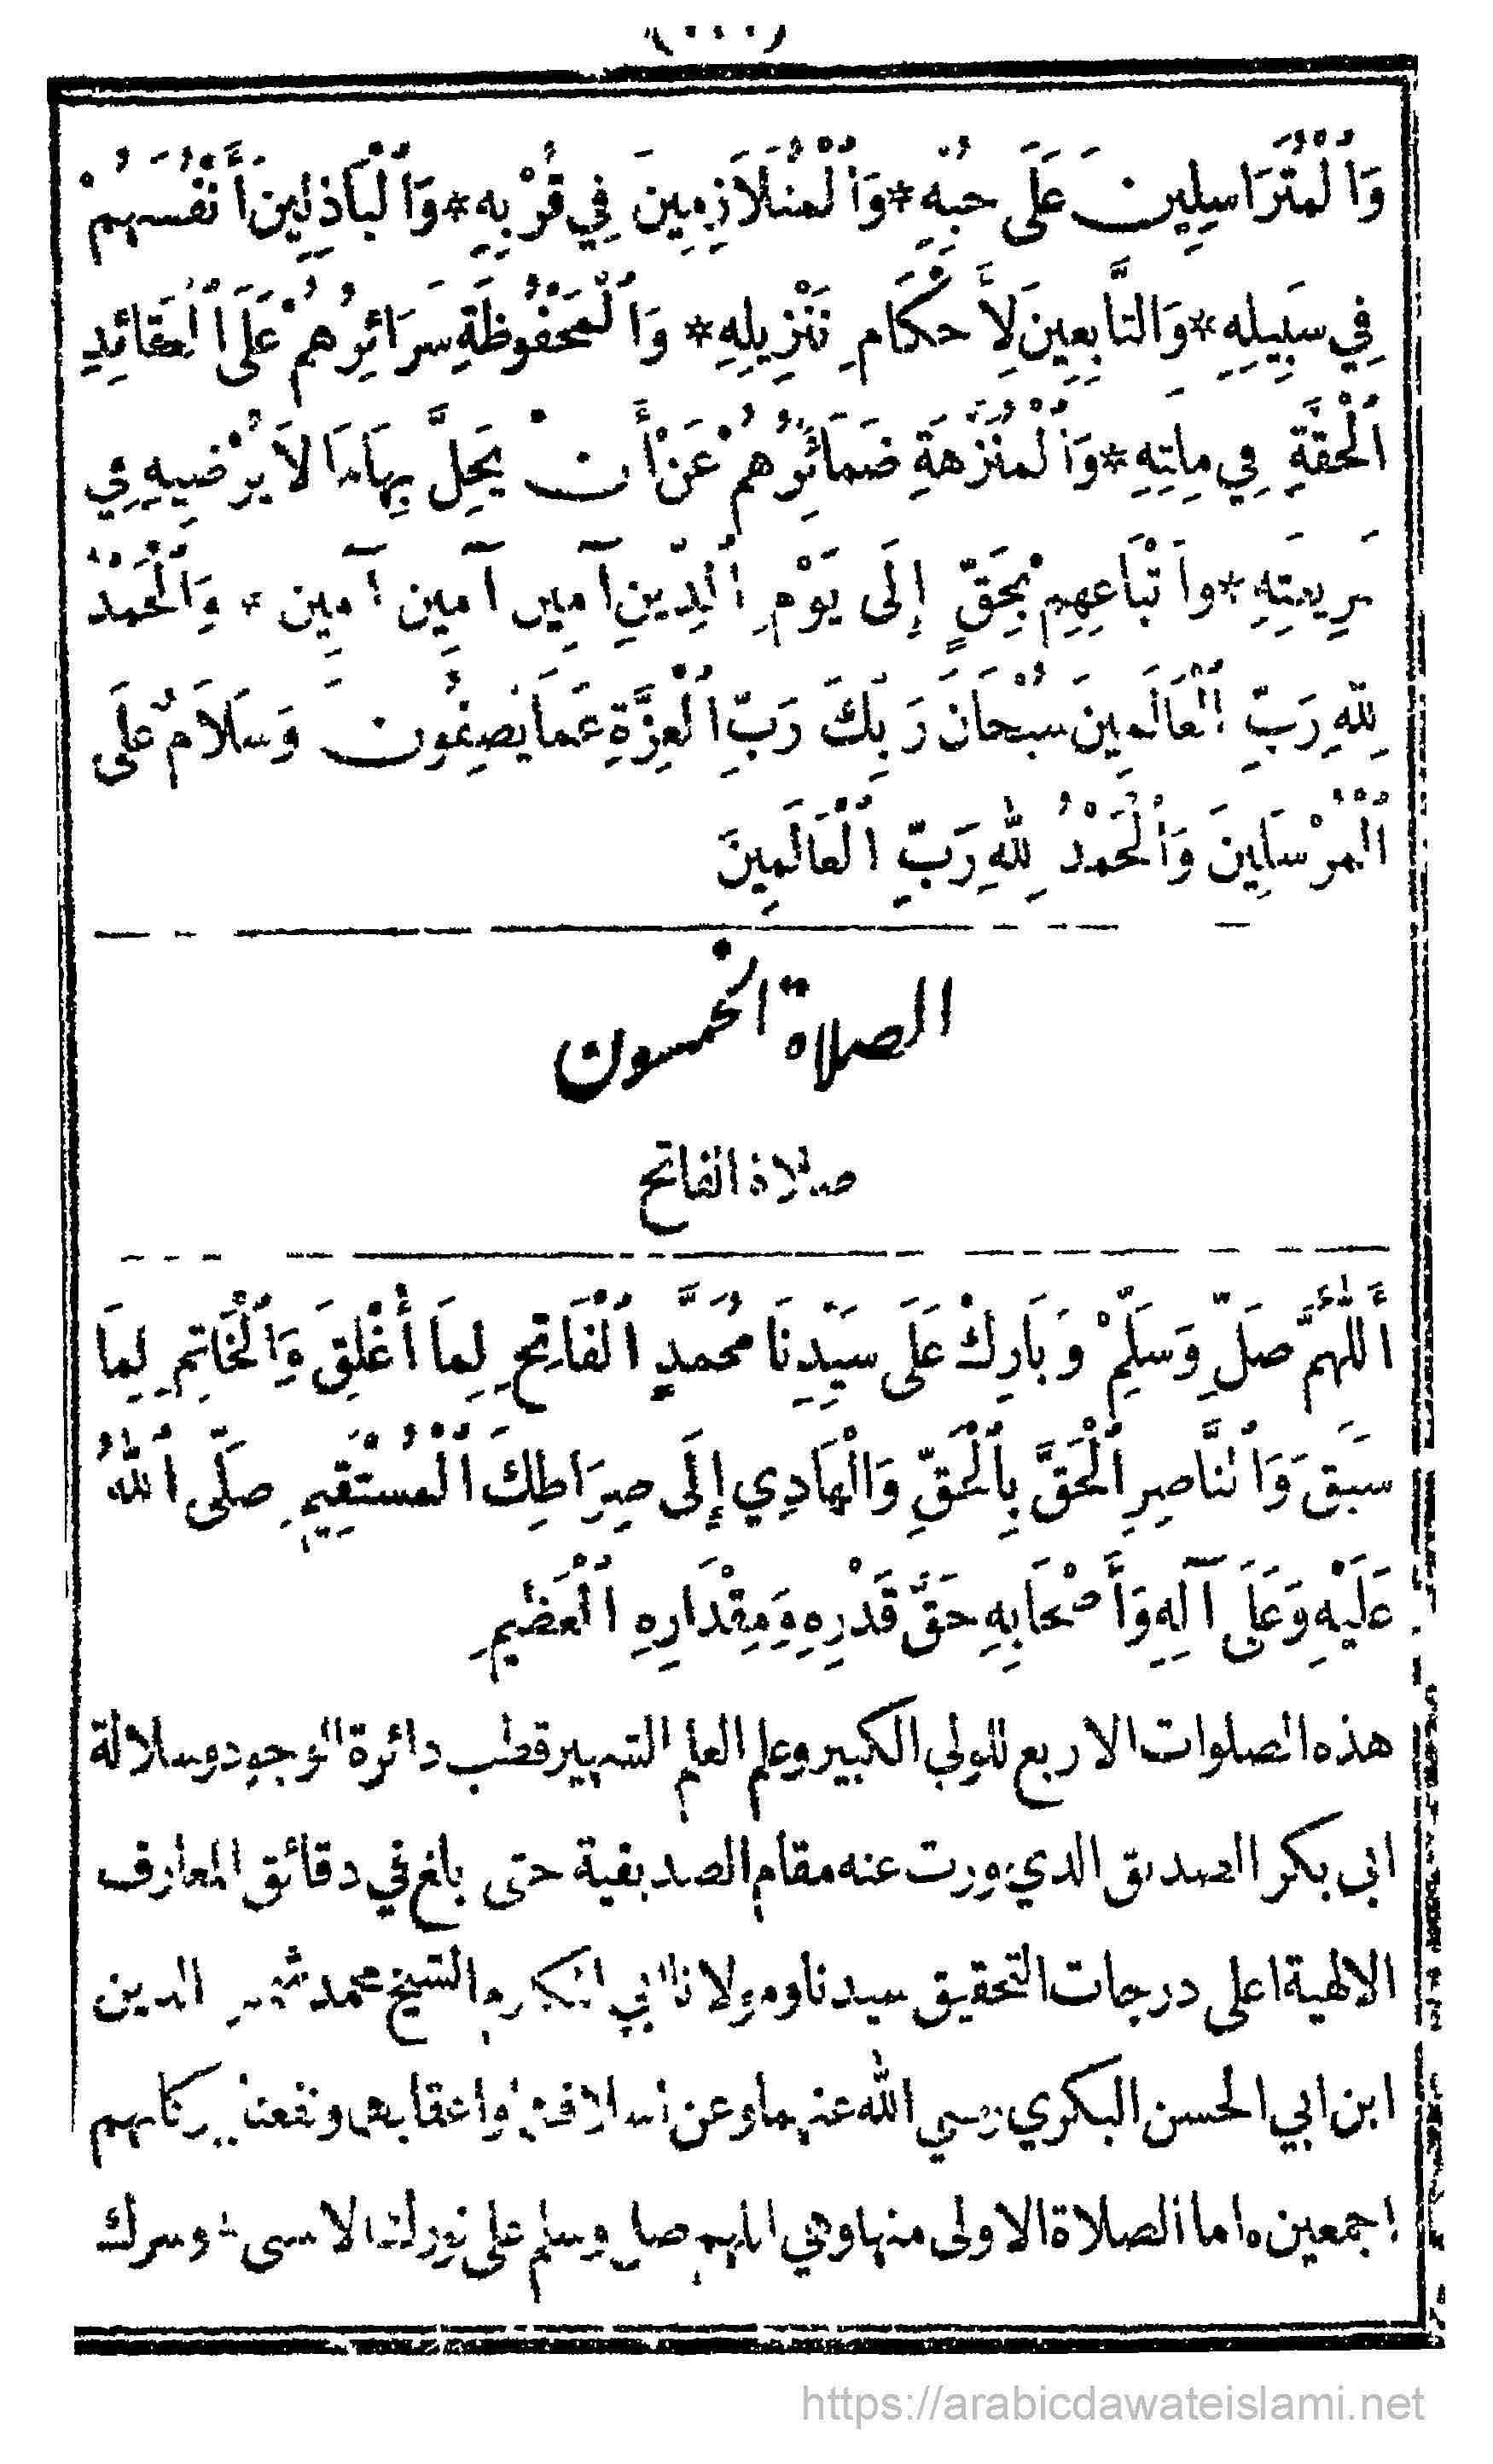 وَٱلْمُتَرَاسِلِينَ عَلَى حُبِّهِ * وَٱلْمُتَلَازِمِينَ فِي قُرْبِهِ * وَٱلْبَاذِلِينَ أَنْفُسَهُمْ
فِي سَبِيلِهِ * وَالتَّابِعِينَ لِأَحْكَامِ تَنْزِيلِهِ * وَٱلْمَحْفُوظَةِ سَرَائِرُهُمْ عَلَى ٱلْعَقَائِدِ
ٱلْحَقَّةِ فِي مِلَّتِهِ * وَٱلْمُنَزَّهَةِ ضَمَائِرُهُمْ عَنْ أَنْ يَحِلَّ بِهَا مَا لَا يُرْضِيهِ فِي
شَرِيعَتِهِ * وأَتْبَاعِهِمْ بِحَقٍّ إِلَى يَوْمِ ٱلدِّينِ آمِين آمِين آمِين * وَٱلْحَمْدُ
لِلّٰهِ رَبِّ ٱلْعَالَمِينَ سُبْحَانَ رَبِّكَ رَبِّ ٱلْعِزَّةِ عَمَّا يَصِفُونَ وَسَلَامٌ عَلَى
ٱلْمُرْسَلِينَ وَٱلْحَمْدُ لِلّٰهِ رَبِّ ٱلْعَالَمِينَ
الصلاة الخمسون
صلاة الفاتح
أَللّٰهُمَّ صَلِّ وَسَلِّمْ وَبَارِكْ عَلَى سَيِّدِنَا مُحَمَّدٍ ٱلْفَاتِحِ لِمَا أُغْلِقَ وَٱلْخَاتِمِ لِمَا
سَبَقَ وَٱلنَّاصِرِ ٱلْحَقَّ بِٱلْحَقِّ وَٱلْهَادِي إِلَى صِرَاطِكَ ٱلْمُسْتَقِيمِ صَلَّى ٱللّٰهُ
عَلَيْهِ وَعَلَى آلِهِ وَأَصْحَابِهِ حَقَّ قَدْرِهِ وَمِقْدَارِهِ ٱلْعَظِيمِ
هذه الصلوات الاربع للولي الكبير وعلم العلم الشهير قطب دائرة الوجود وسلالة
ابي بكر الصديق الذي ورث عنه مقام الصديقية حتى بلغ في دقائق المعارف
الالهية اعلى درجات التحقيق سيدنا ومولانا ابي المكارم الشيخ محمد شمس الدين
ابن ابي الحسن البكري رضي الله عنهما وعن اسلافهما واعقابهما ونفعنا ببركاتهم
اجمعين ه اما الصلاة الاولى منها وهي اللهم صل وسلم على نورك الاسنى وسرك
https://arabicdawateislami.net